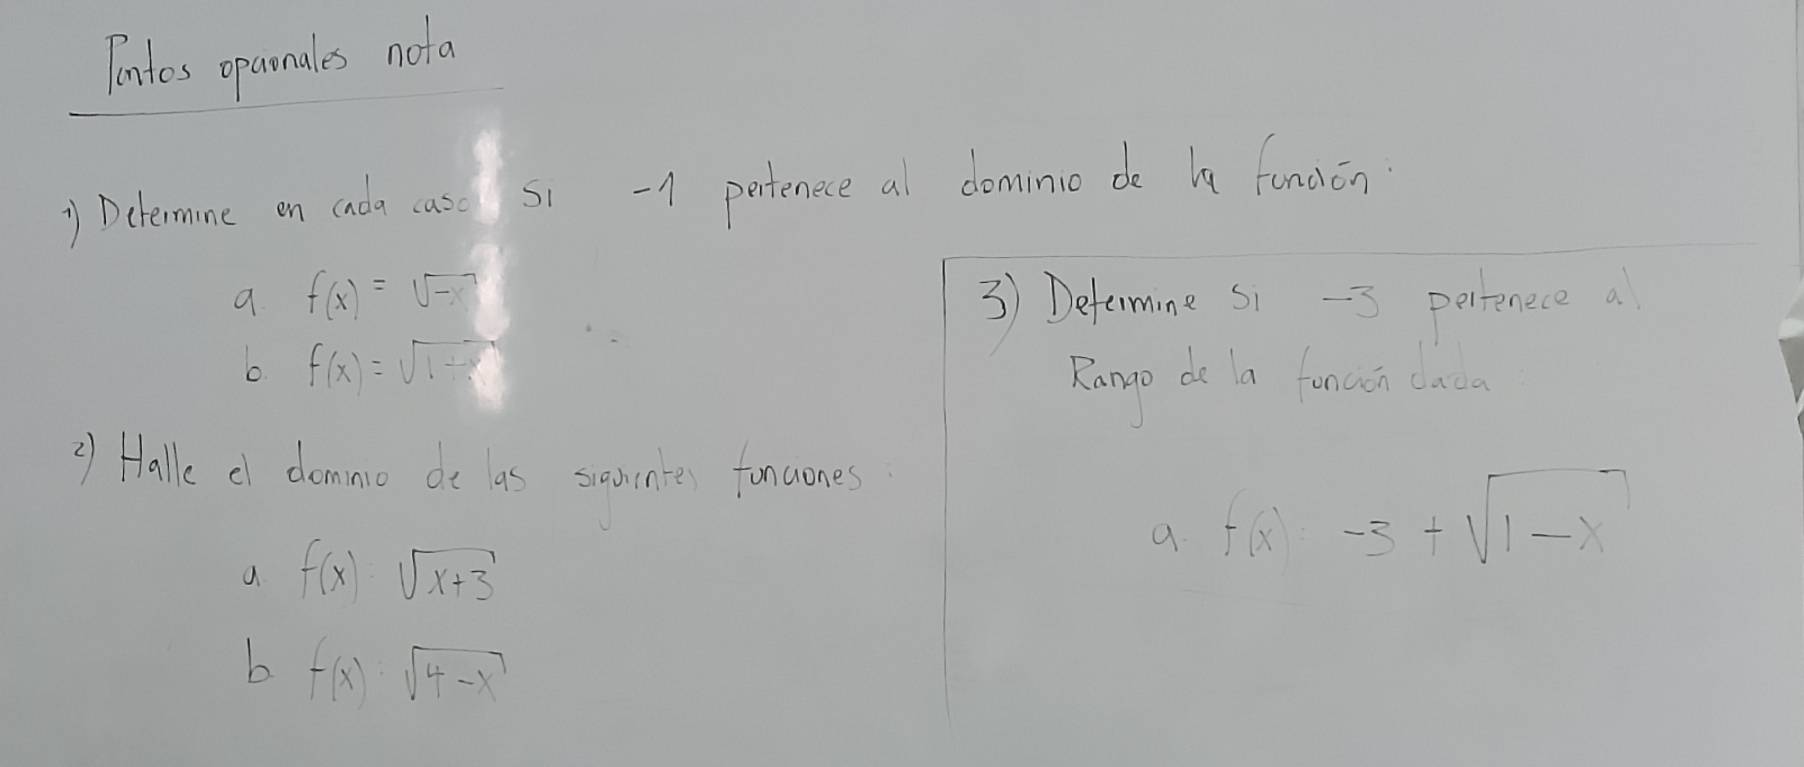 Puntos opcionales nota
1) Determine en cada caso si -1 pertenece al dominio de la función:
a. f(x) = √-x
b. f(x) = √1
2) Halle el dominio de las siguientes funciones:
a. f(x): √x+3
b. f(x): √4-x
3) Determine si -3 pertenece al
Rango de la función dada:
a. f(x): -3 + √1-x